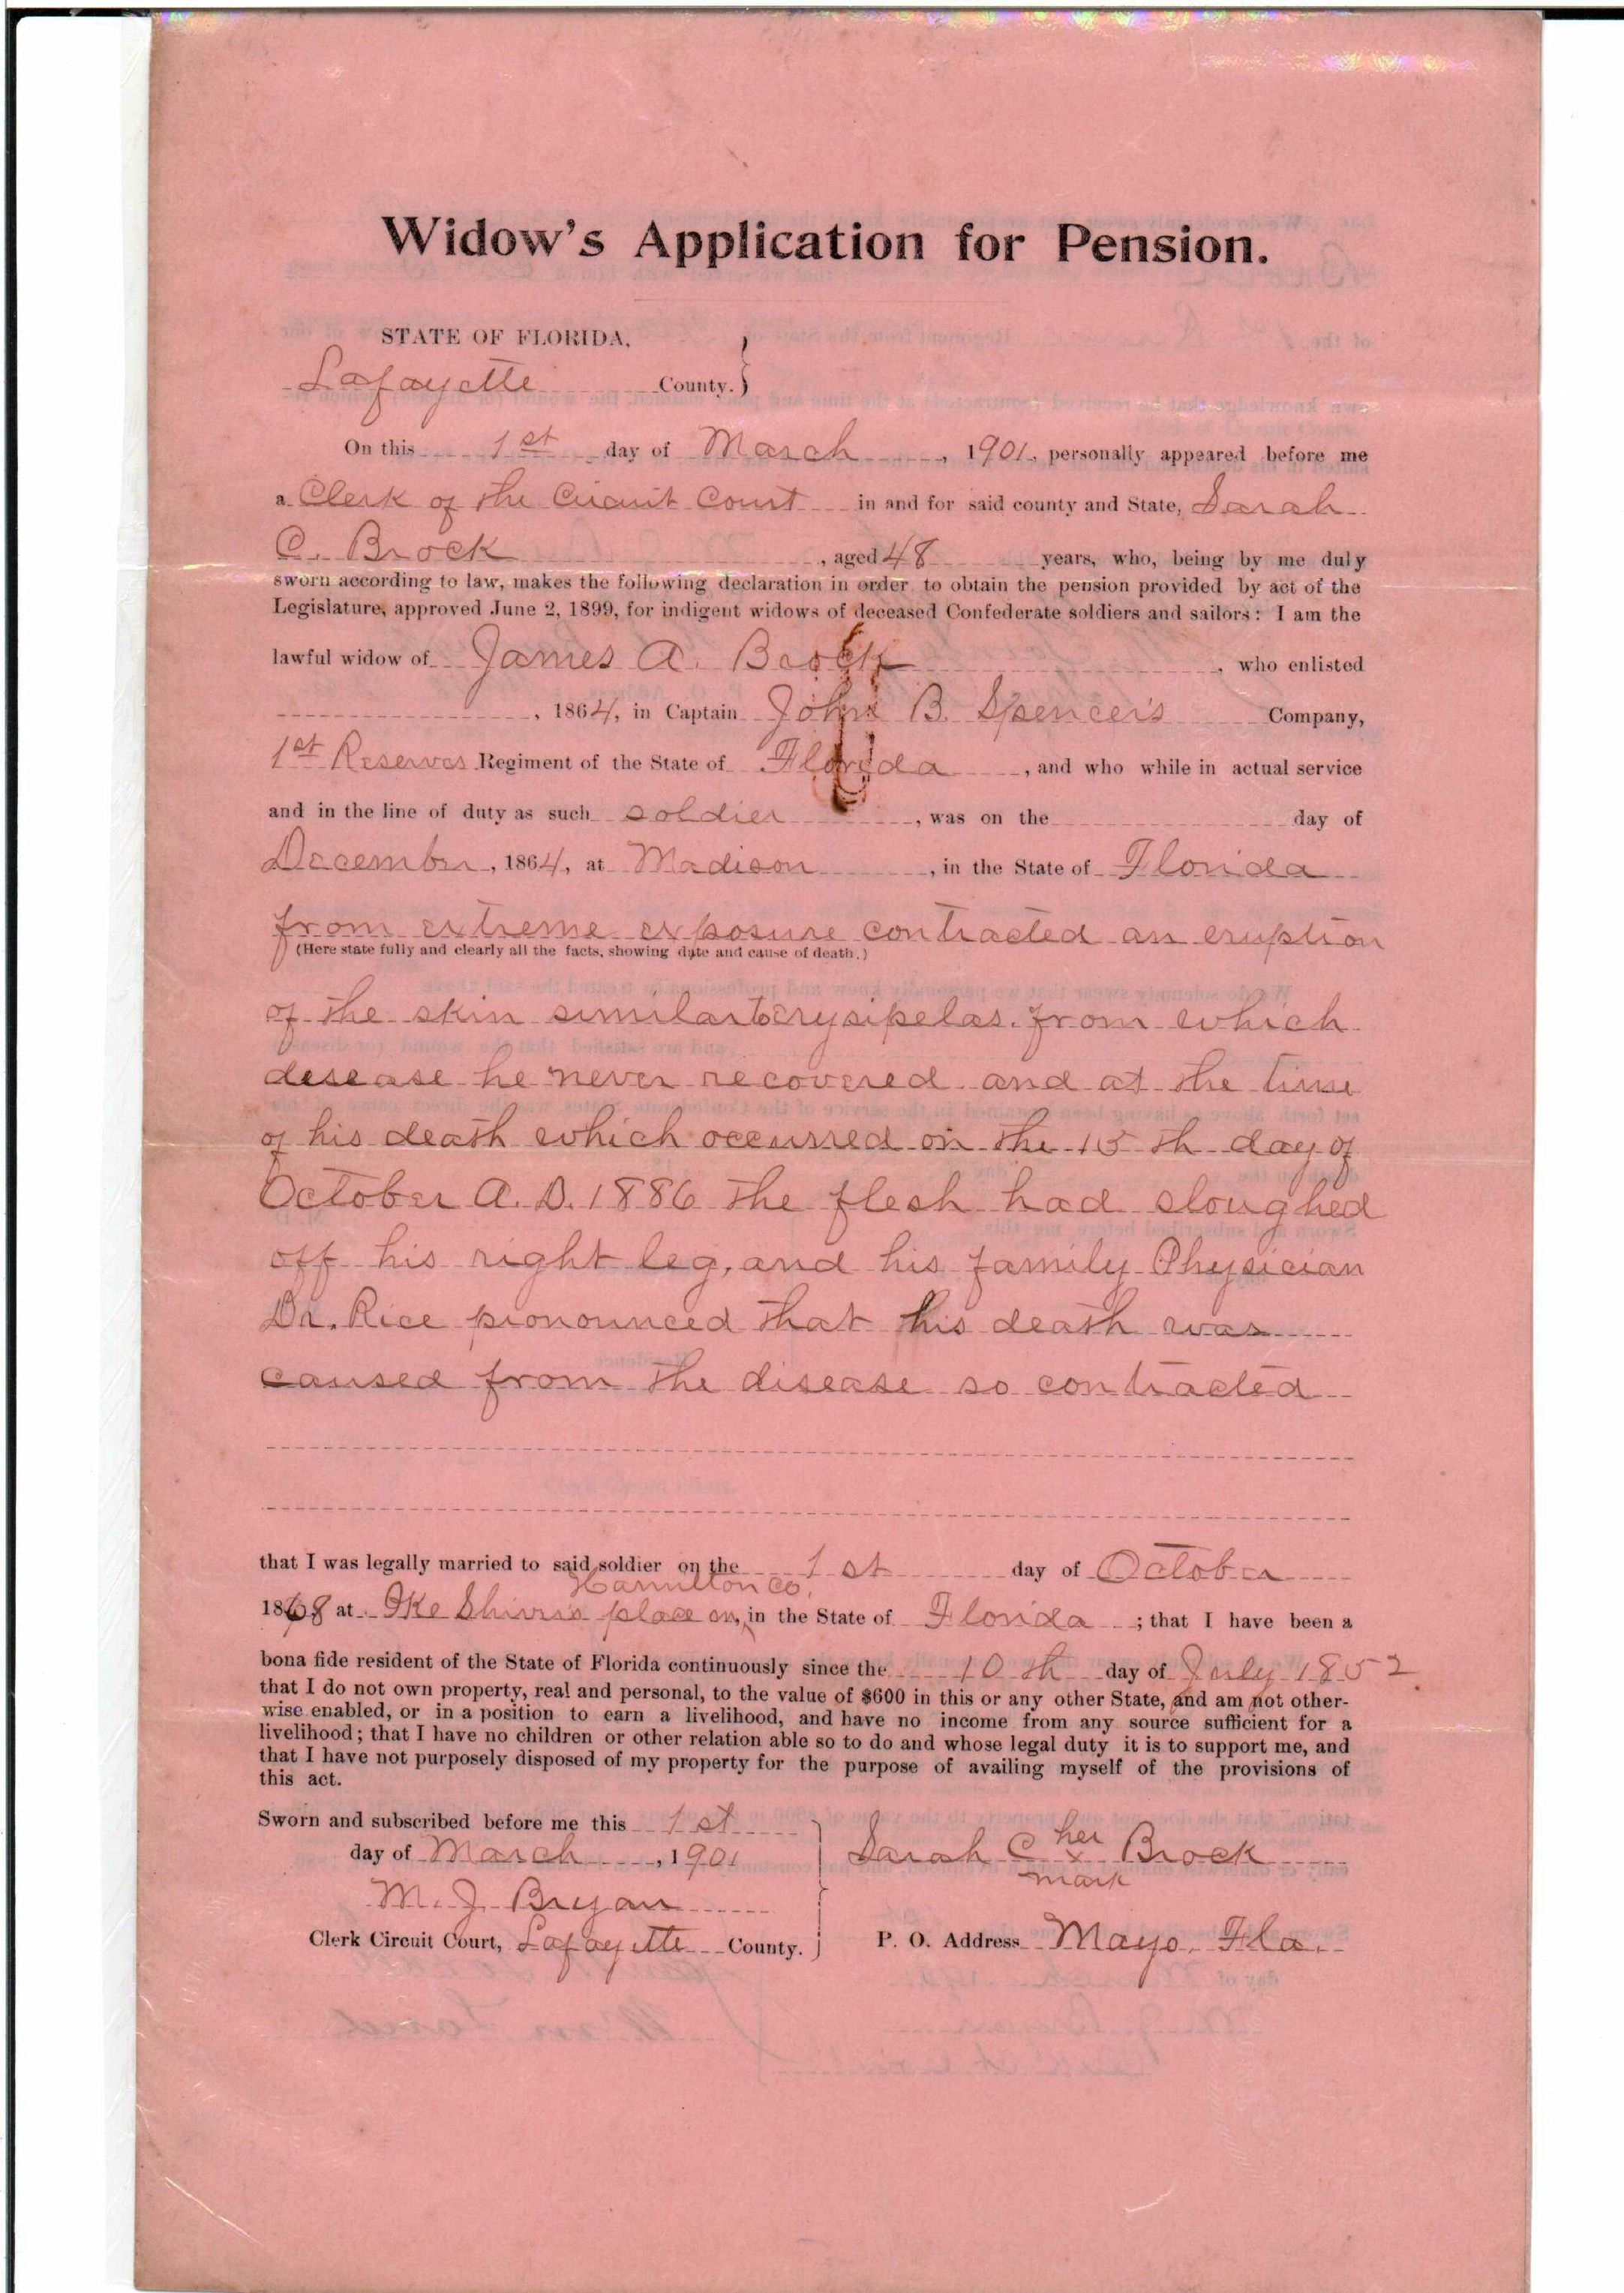 Widow's Application for Pension.
STATE OF FLORIDA,
Lafayette County. }
On this 1st day of March, 1901, personally appeared before me
a Clerk of the Circuit Court in and for said county and State, Sarah
C. Brock, aged 48 years, who, being by me duly
sworn according to law, makes the following declaration in order to obtain the pension provided by act of the
Legislature, approved June 2, 1899, for indigent widows of deceased Confederate soldiers and sailors: I am the
lawful widow of James A. Brock, who enlisted
, 1864, in Captain John B. Spencer's Company,
1st Reserves Regiment of the State of Florida, and who while in actual service
and in the line of duty as such soldier, was on the day of
December, 1864, at Madison, in the State of Florida
from extreme exposure contracted an eruption
(Here state fully and clearly all the facts, showing date and cause of death.)
of the skin similar to erysipelas. from which
desease he never recovered and at the time
of his death which occurred on the 15th day of
October A.D. 1886 the flesh had sloughed
off his right leg, and his family Physician
Dr. Rice pronounced that his death was
caused from the disease so contracted
that I was legally married to said soldier on the 1st day of October
Hamilton Co.
1868 at Ike place on, in the State of Florida; that I have been a
bona fide resident of the State of Florida continuously since the 10th day of July 1852
that I do not own property, real and personal, to the value of $600 in this or any other State, and am not other-
wise enabled, or in a position to earn a livelihood, and have no income from any source sufficient for a
livelihood; that I have no children or other relation able so to do and whose legal duty it is to support me, and
that I have not purposely disposed of my property for the purpose of availing myself of the provisions of
this act.
Sworn and subscribed before me this 1st
day of March, 1901
M. J. Bryan
Clerk Circuit Court, Lafayette County.
her
Sarah C x Brock
mark
P. O. Address Mayo, Fla.